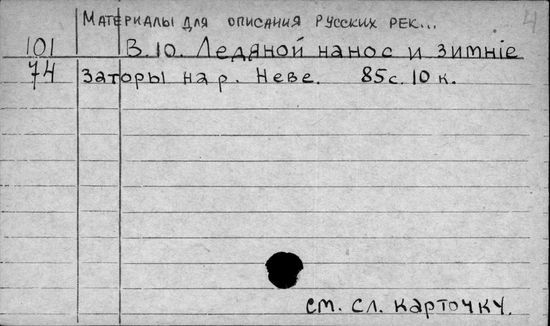 4
Материалы для описания русских рек...
101 В.10. Ледяной нанос и зимніе
74 заторы на р. Неве. 85с. 10 к.
см. сл. карточку.